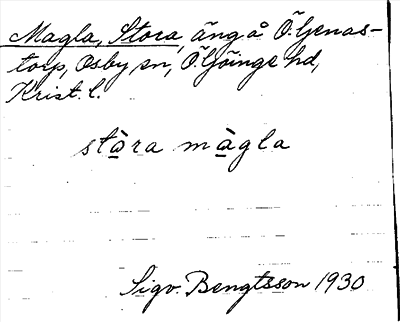 Magla, Stora, äng å Ö. Genas-
torp, Osby sn, Ö. Göinge hd,
Krist. l.
stòra màgla
Sigv. Bengtsson 1930